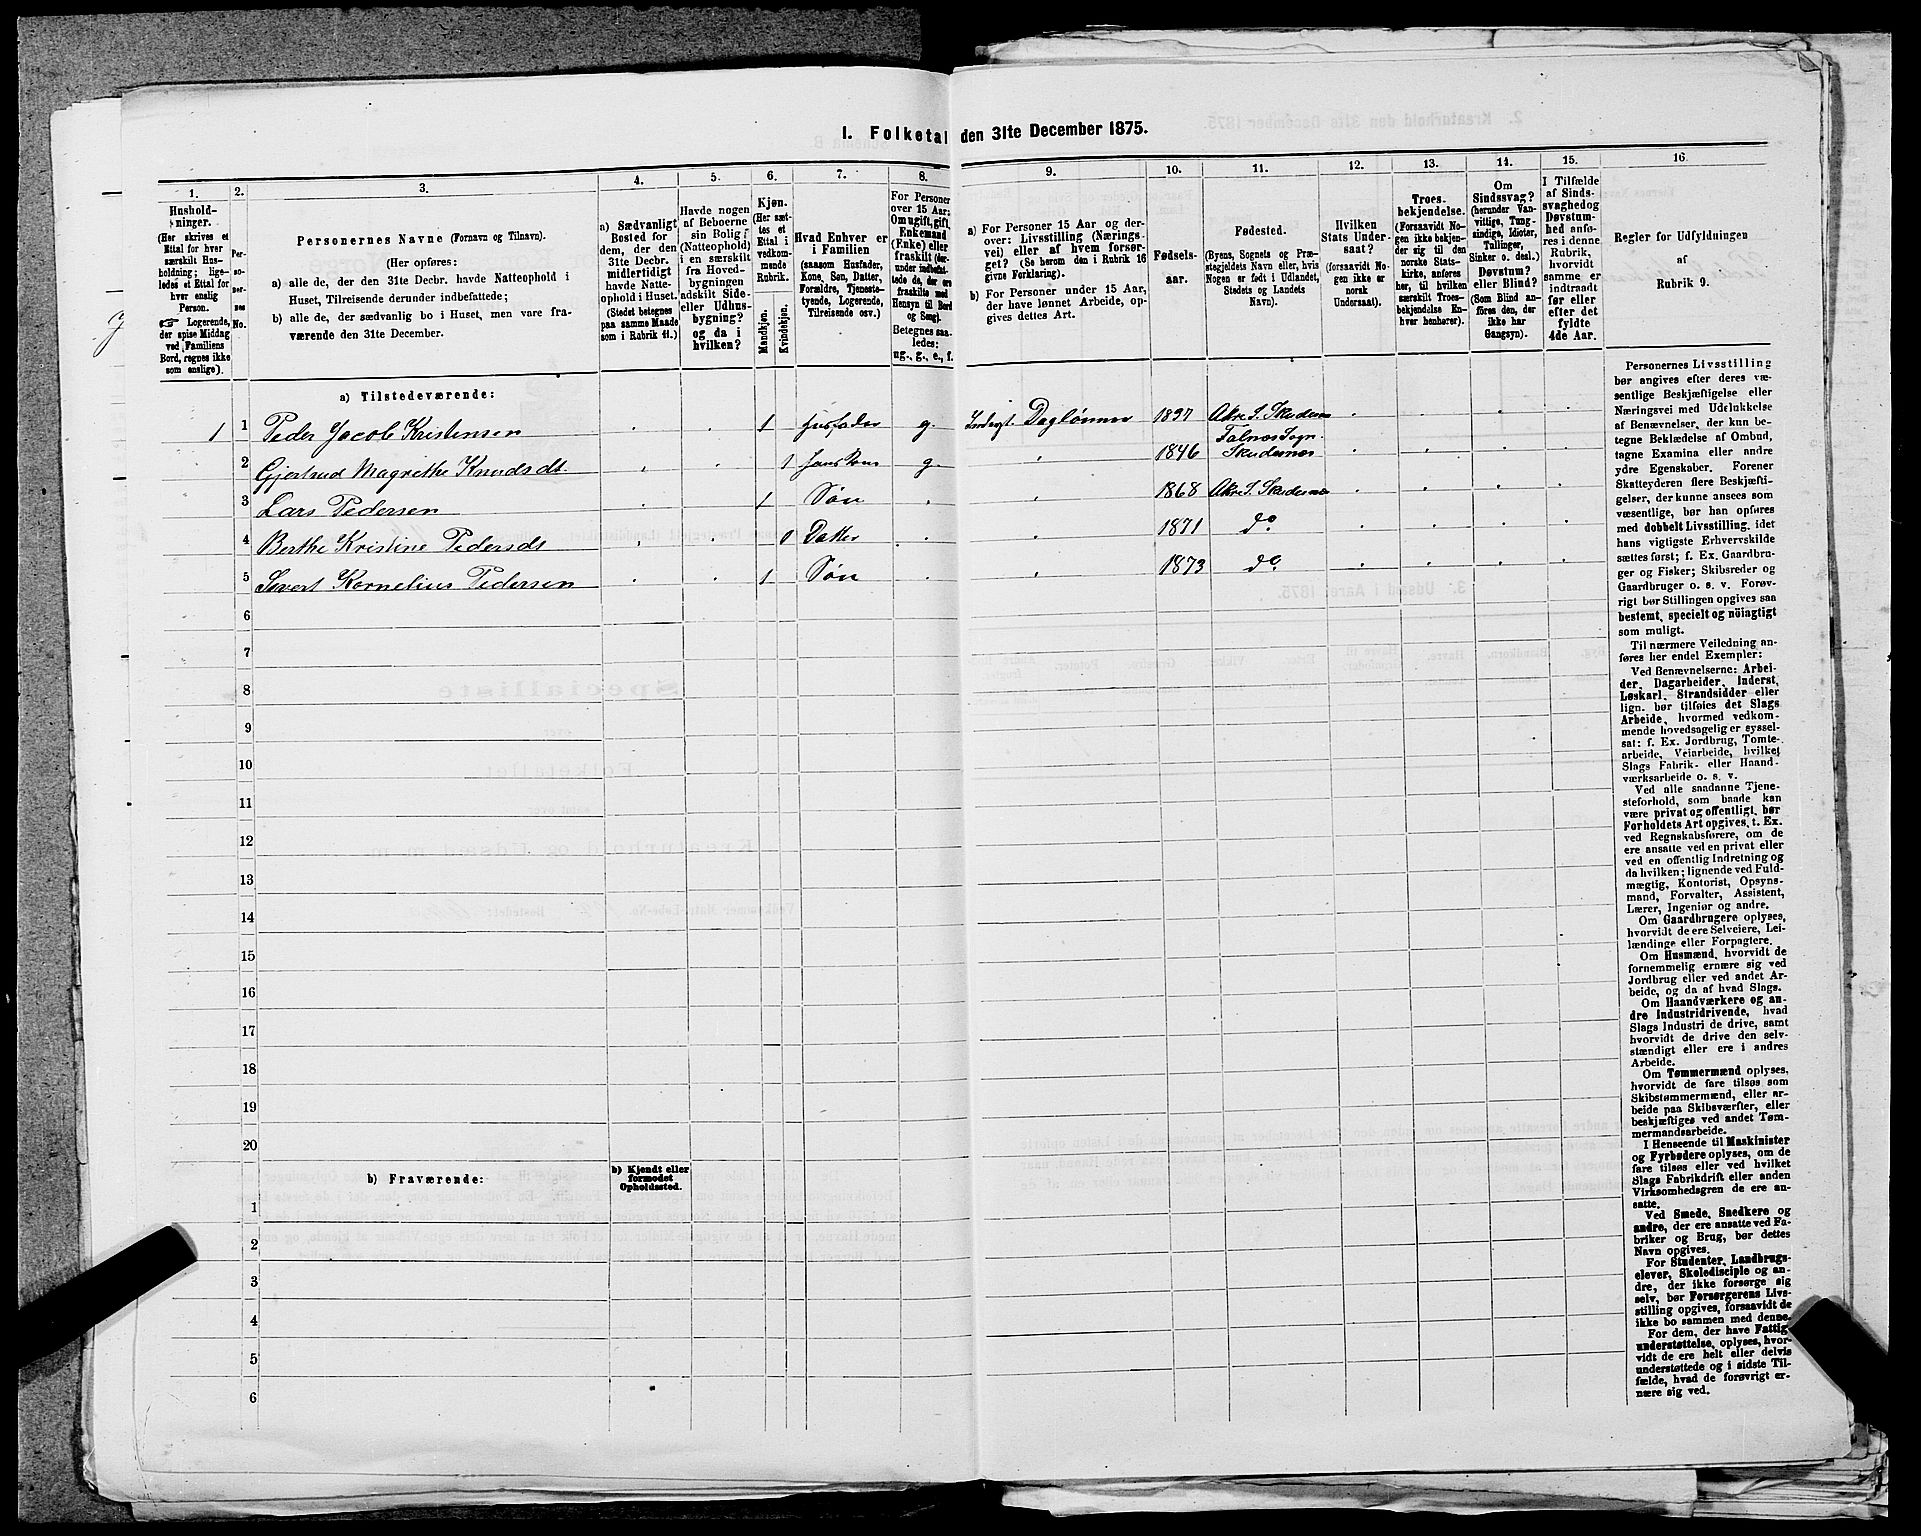 I. Folketal den 31te December 1875.
1.
Hushold-
ninger.
(Her skrives et
Ettal for hver
særskilt Hus-
holdning; lige-
ledes et Ettal for
hver enslig
Person.
☞ Logerende,
der spise Middag
ved Familiens
Bord, regnes ikke
som enslige).
2.
Per-
so-
ner-
nes
No.
3.
Personernes Navne (Fornavn og Tilnavn).
(Her opføres:
a) alle de, der den 31te Decbr. havde Natteophold i
Huset, Tilreisende derunder indbefattede;
b) alle de, der sædvanlig bo i Huset, men vare fra-
værende den 31te December.
4.
a) Sædvanligt
Bosted for
dem, der den
31te Decbr.
midlertidigt
havde Natte-
ophold i Huset.
(Stedet betegnes
paa samme Maade
som i Rubrik 11.)
5.
Havde nogen
af Beboerne
sin Bolig
(Natteophold)
i en særskilt
fra Hoved-
bygningen
adskilt Side-
eller Udhus-
bygning?
og da i
hvilken?
6.
Kjøn.
(Her sæt-
tes et
Ettal i
vedkom-
mende
Rubrik.
Mandkjøn.
Kvindekjøn.
7.
Hvad Enhver er
i Familien
(saasom Husfader,
Kone, Søn, Datter,
Forældre, Tjeneste-
tyende, Logerende,
Tilreisende osv.)
8.
For Personer
over 15 Aar:
Om ugift, gift,
Enkemand
(Enke) eller
fraskilt
Hensyn til Bord
og Seng).
Betegnes saa-
ledes:
ug., g., e., f.
9.
a) For Personer 15 Aar og der-
over: Livsstilling (Nærings-
vei) eller af hvem forsør-
get? (Se herom den i Rubrik 16
givne Forklaring).
b) For Personer under 15 Aar,
der have lønnet Arbeide, op-
gives dettes Art.
10.
Fødsels-
aar.
11.
Fødested.
(Byens, Sognets og Præ-
stegjeldets Navn eller, hvis
Nogen er født i Udlandet,
Stedets og Landets
Navn).
12.
Hvilken
Stats Under-
saat?
(forsaavidt No-
gen ikke er
norsk
Undersaat).
13.
Troes-
bekjendelse.
(Forsaavidt No-
gen ikke bekjen-
der sig til den
norske Stats-
kirke, anføres
her, til hvilken
særskilt Troes-
bekjendelse En-
hver henhører).
14.
Om
Sindssvag?
(herunder Van-
vittige, Tung-
sindige, Idioter,
Tullinger,
Sinker o. desl.)
Døvstum?
eller Blind?
(Som Blind an-
føres den, der
ikke har
Gangsyn).
15.
I Tilfælde
af Sinds-
svaghed og
Døvstum-
hed anfø-
res i denne
Rubrik,
hvorvidt
samme er
indtraadt
før eller
efter det
fyldte
4de Aar.
16.
Regler for Udfyldningen
af
Rubrik 9.
a) Tilstedeværende:
1 1 Peder Jacob Kristensen 1 Husfader g. Indergt. Daglønner 1837 Akre S. Skudenes
2 Gjertrud Magrethe Knudsdt. 1 g. 1846 Falnes Sogn. Skudesnes
3 Lars Pedersen 1 Søn 1868 Akre S. Skudesnes
4 Berthe Kristine Pedersdt 0 Datter 1871 do
5 Sivert Kornelius Pedersen 1 Søn 1873 do
6
7
8
9
10
11
12
13
14
15
16
17
18
19
20
b) Fraværende:
b) Kjendt eller
formodet
Opholdssted.
1
2
3
4
5
6
Personernes Livsstilling
bør angives efter deres væ-
sentlige Beskjæftigelse eller
Næringsvei med Udelukkelse
af Benævnelser, der kun be-
tegne Beklædelse af Ombud,
tagne Examina eller andre
ydre Egenskaber. Forener
Skatteyderen flere Beskjæfti-
gelser, der kunne ansees som
væsentlige, bør han opføres
med dobbelt Livsstilling, idet
hans vigtigste Erhvervskilde
sættes først; f. Ex. Gaardbru-
ger og Fisker; Skibsreder og
Gaardbruger o. s. v. Forøv-
rigt bør Stillingen opgives saa
bestemt, specielt og nöiagtigt
som muligt.
Til nærmere Veiledning an-
føres her endel Exempler:
Ved Benævnelserne: Arbei-
der, Dagarbeider, Inderst,
Løskarl, Strandsidder eller
lign. bør tilføies det Slags
Arbeide, hvormed vedkom-
mende hovedsagelig er syssel-
sat: f. Ex. Jordbrug, Tomte-
arbeide, Veiarbeide, hvilket
Slags Fabrik- eller Haand-
værksarbeide o. s. v.
Ved alle saadanne Tjene-
steforhold, som baade kan
være privat og offentligt, bør
Forholdets Art opgives, t. Ex.
ved Regnskabsførere, om de
ere ansatte ved en privat eller
ved en offentlig Indretning og
da hvilken; lignende ved Fuld-
mægtig, Kontorist, Opsyns-
mand, Forvalter, Assistent,
Lærer, Ingeniør og andre.
Om Gaardbrugere oplyses,
hvorvidt de ere Selveiere, Lei-
lændinge eller Forpagtere.
Om Husmænd, hvorvidt de
fornemmelig ernære sig ved
Jordbrug eller ved andet Ar-
beide, og da af hvad Slags.
Om Haandværkere og an-
dre Industridrivende, hvad
Slags Industri de drive, samt
hvorvidt de drive den selv-
stændigt eller ere i andres
Arbeide.
Om Tømmermænd oplyses,
hvorvidt de fare tilsøs som
Skibstømmermænd, eller ar-
beide paa Skibsværfter, eller
beskjæftiges ved andet Tøm-
mermandsarbeide.
I Henseende til Maskinister
og Fyrbødere oplyses, om de
fare tilsøs eller ved hvilket
Slags Fabrikdrift eller anden
Virksomhedsgren de ere an-
satte.
Ved Smede, Snedkere og
andre, der ere ansatte ved Fa-
briker og Brug, bør dettes
Navn opgives.
For Studenter, Landbrugs-
elever, Skoledisciple og an-
dre, der ikke forsørge sig
selv, bør Forsørgerens Livs-
stilling opgives, forsaavidt de
ikke bo sammen med denne.
For dem, der have Fattig-
understøttelse, oplyses, hvor-
vidt de ere helt eller delvis
understøttede og i sidste Til-
fælde, hvad de forøvrigt er-
nære sig ved.